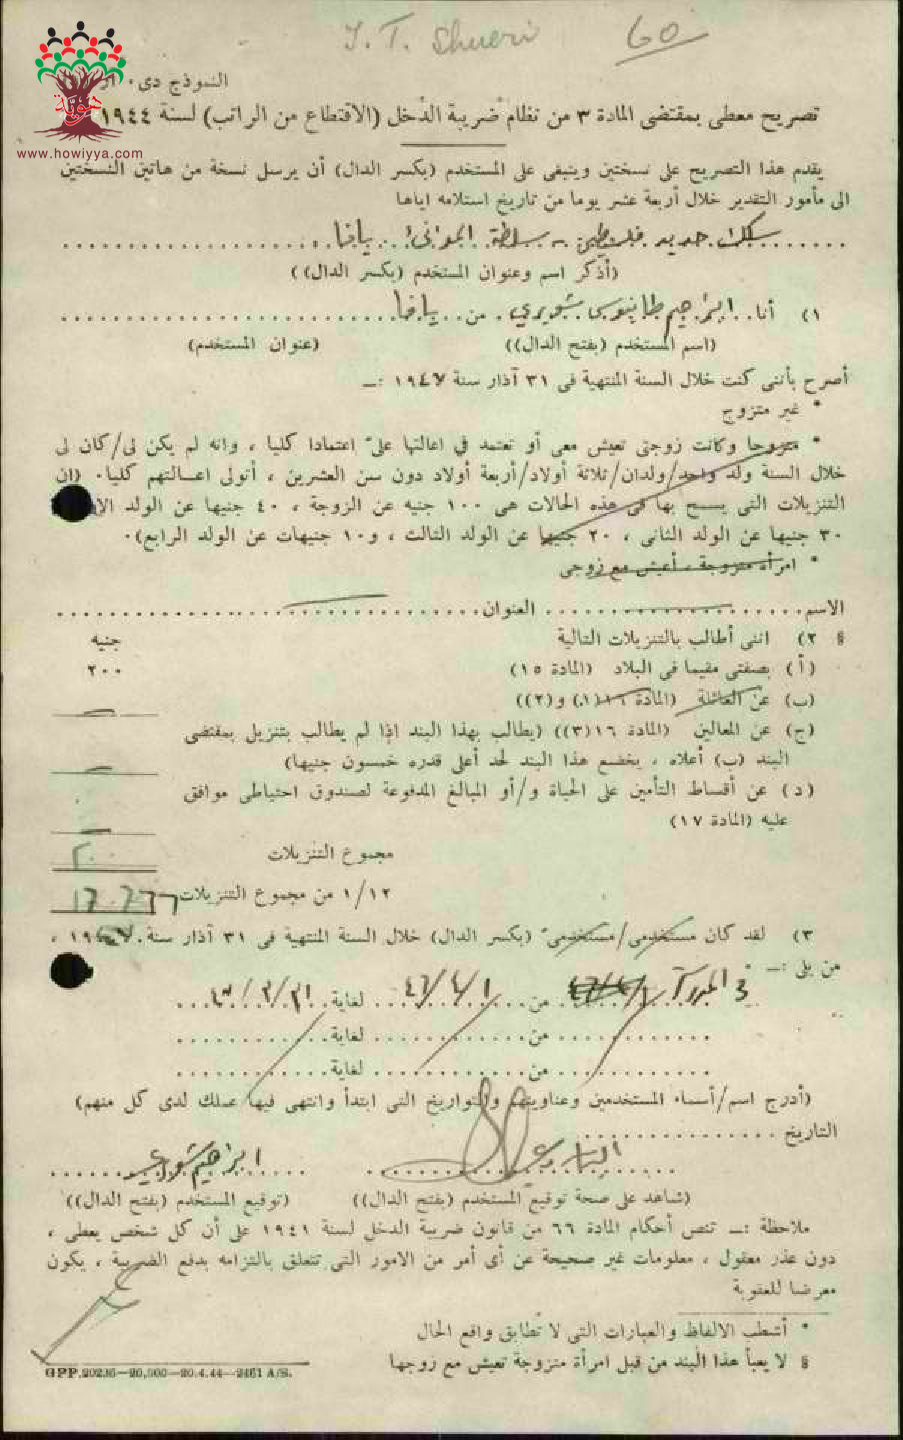 J. T. Shueri 60
هوية
www.howiyya.com
النموذج دى٠
تصريح معطى بمقتضى المادة ٣ من نظام ضريبة الدخل (الاقتطاع من الراتب) لسنة ١٩٤٤
يقدم هذا التصريح على نسختين وينبغى على المستخدم (بكسر الدال) أن يرسل نسخة من هاتين النسختين
الى مأمور التقدير خلال أربعة عشر يوما من تاريخ استلامه اياها
سكك حديد فلسطين - سلطة الموانئ يافا
(أذكر اسم وعنوان المستخدم (بكسر الدال))
١) أنا ابراهيم طانيوس شويري من يافا
(اسم المستخدم (بفتح الدال)) (عنوان المستخدم)
أصرح بأننى كنت خلال السنة المنتهية فى ٣١ آذار سنة ١٩٤٧ :ــ
* غير متزوج
* متزوجا وكانت زوجتى تعيش معى أو تعتمد في اعالتها علىّ اعتمادا كليا ، وانه لم يكن لى/كان لى
خلال السنة ولد واحد/ولدان/ثلاثة أولاد/أربعة أولاد دون سن العشرين ، أتولى اعـالتهم كليا٠ (ان
التنزيلات التى يسمح بها فى هذه الحالات هى ١٠٠ جنيه عن الزوجة ، ٤٠ جنيها عن الولد
٣٠ جنيها عن الولد الثانى ، ٢٠ جنيها عن الولد الثالث ، و١٠ جنيهات عن الولد الرابع)٠
* امرأة متزوجة ، أعيش مع زوجى
الاسم العنوان
§ ٢) اننى أطالب بالتنزيلات التالية جنيه
(أ) بصفتى مقيما فى البلاد (المادة ١٥) ٢٠٠
(ب) عن العائلة (المادة ١٦(١) و(٢)) —
(ج) عن المعالين (المادة ١٦(٣)) (يطالب بهذا البند إذا لم يطالب بتنزيل بمقتضى
البند (ب) أعلاه ، يخضع هذا البند لحد أعلى قدره خمسون جنيها) —
(د) عن أقساط التأمين على الحياة و/أو المبالغ المدفوعة لصندوق احتياطى موافق
عليه (المادة ١٧) —
مجموع التنزيلات ٢٠٠
١/١٢ من مجموع التنزيلات
٣) لقد كان مستخدمى/مستخدمىّ (بكسر الدال) خلال السنة المنتهية فى ٣١ آذار سنة ١٩٤٧ ،
من يلى :ــ
من ١/٤/٤٦ لغاية ٣١/٣/
من لغاية
من لغاية
(أدرج اسم/أسماء المستخدمين وعناوينهم والتواريخ التى ابتدأ وانتهى فيها عملك لدى كل منهم)
التاريخ
ابراهيم شويري
(شاهد على صحة توقيع المستخدم (بفتح الدال)) (توقيع المستخدم (بفتح الدال))
ملاحظة :ــ تنص أحكام المادة ٦٦ من قانون ضريبة الدخل لسنة ١٩٤١ على أن كل شخص يعطى ،
دون عذر معقول ، معلومات غير صحيحة عن أى أمر من الامور التى تتعلق بالتزامه بدفع الضريبة ، يكون
معرضا للعقوبة
* أشطب الالفاظ والعبارات التى لا تطابق واقع الحال
§ لا يعبأ هذا البند من قبل امرأة متزوجة تعيش مع زوجها
GPP.20236—20,000—20.4.44—2461 A/S.